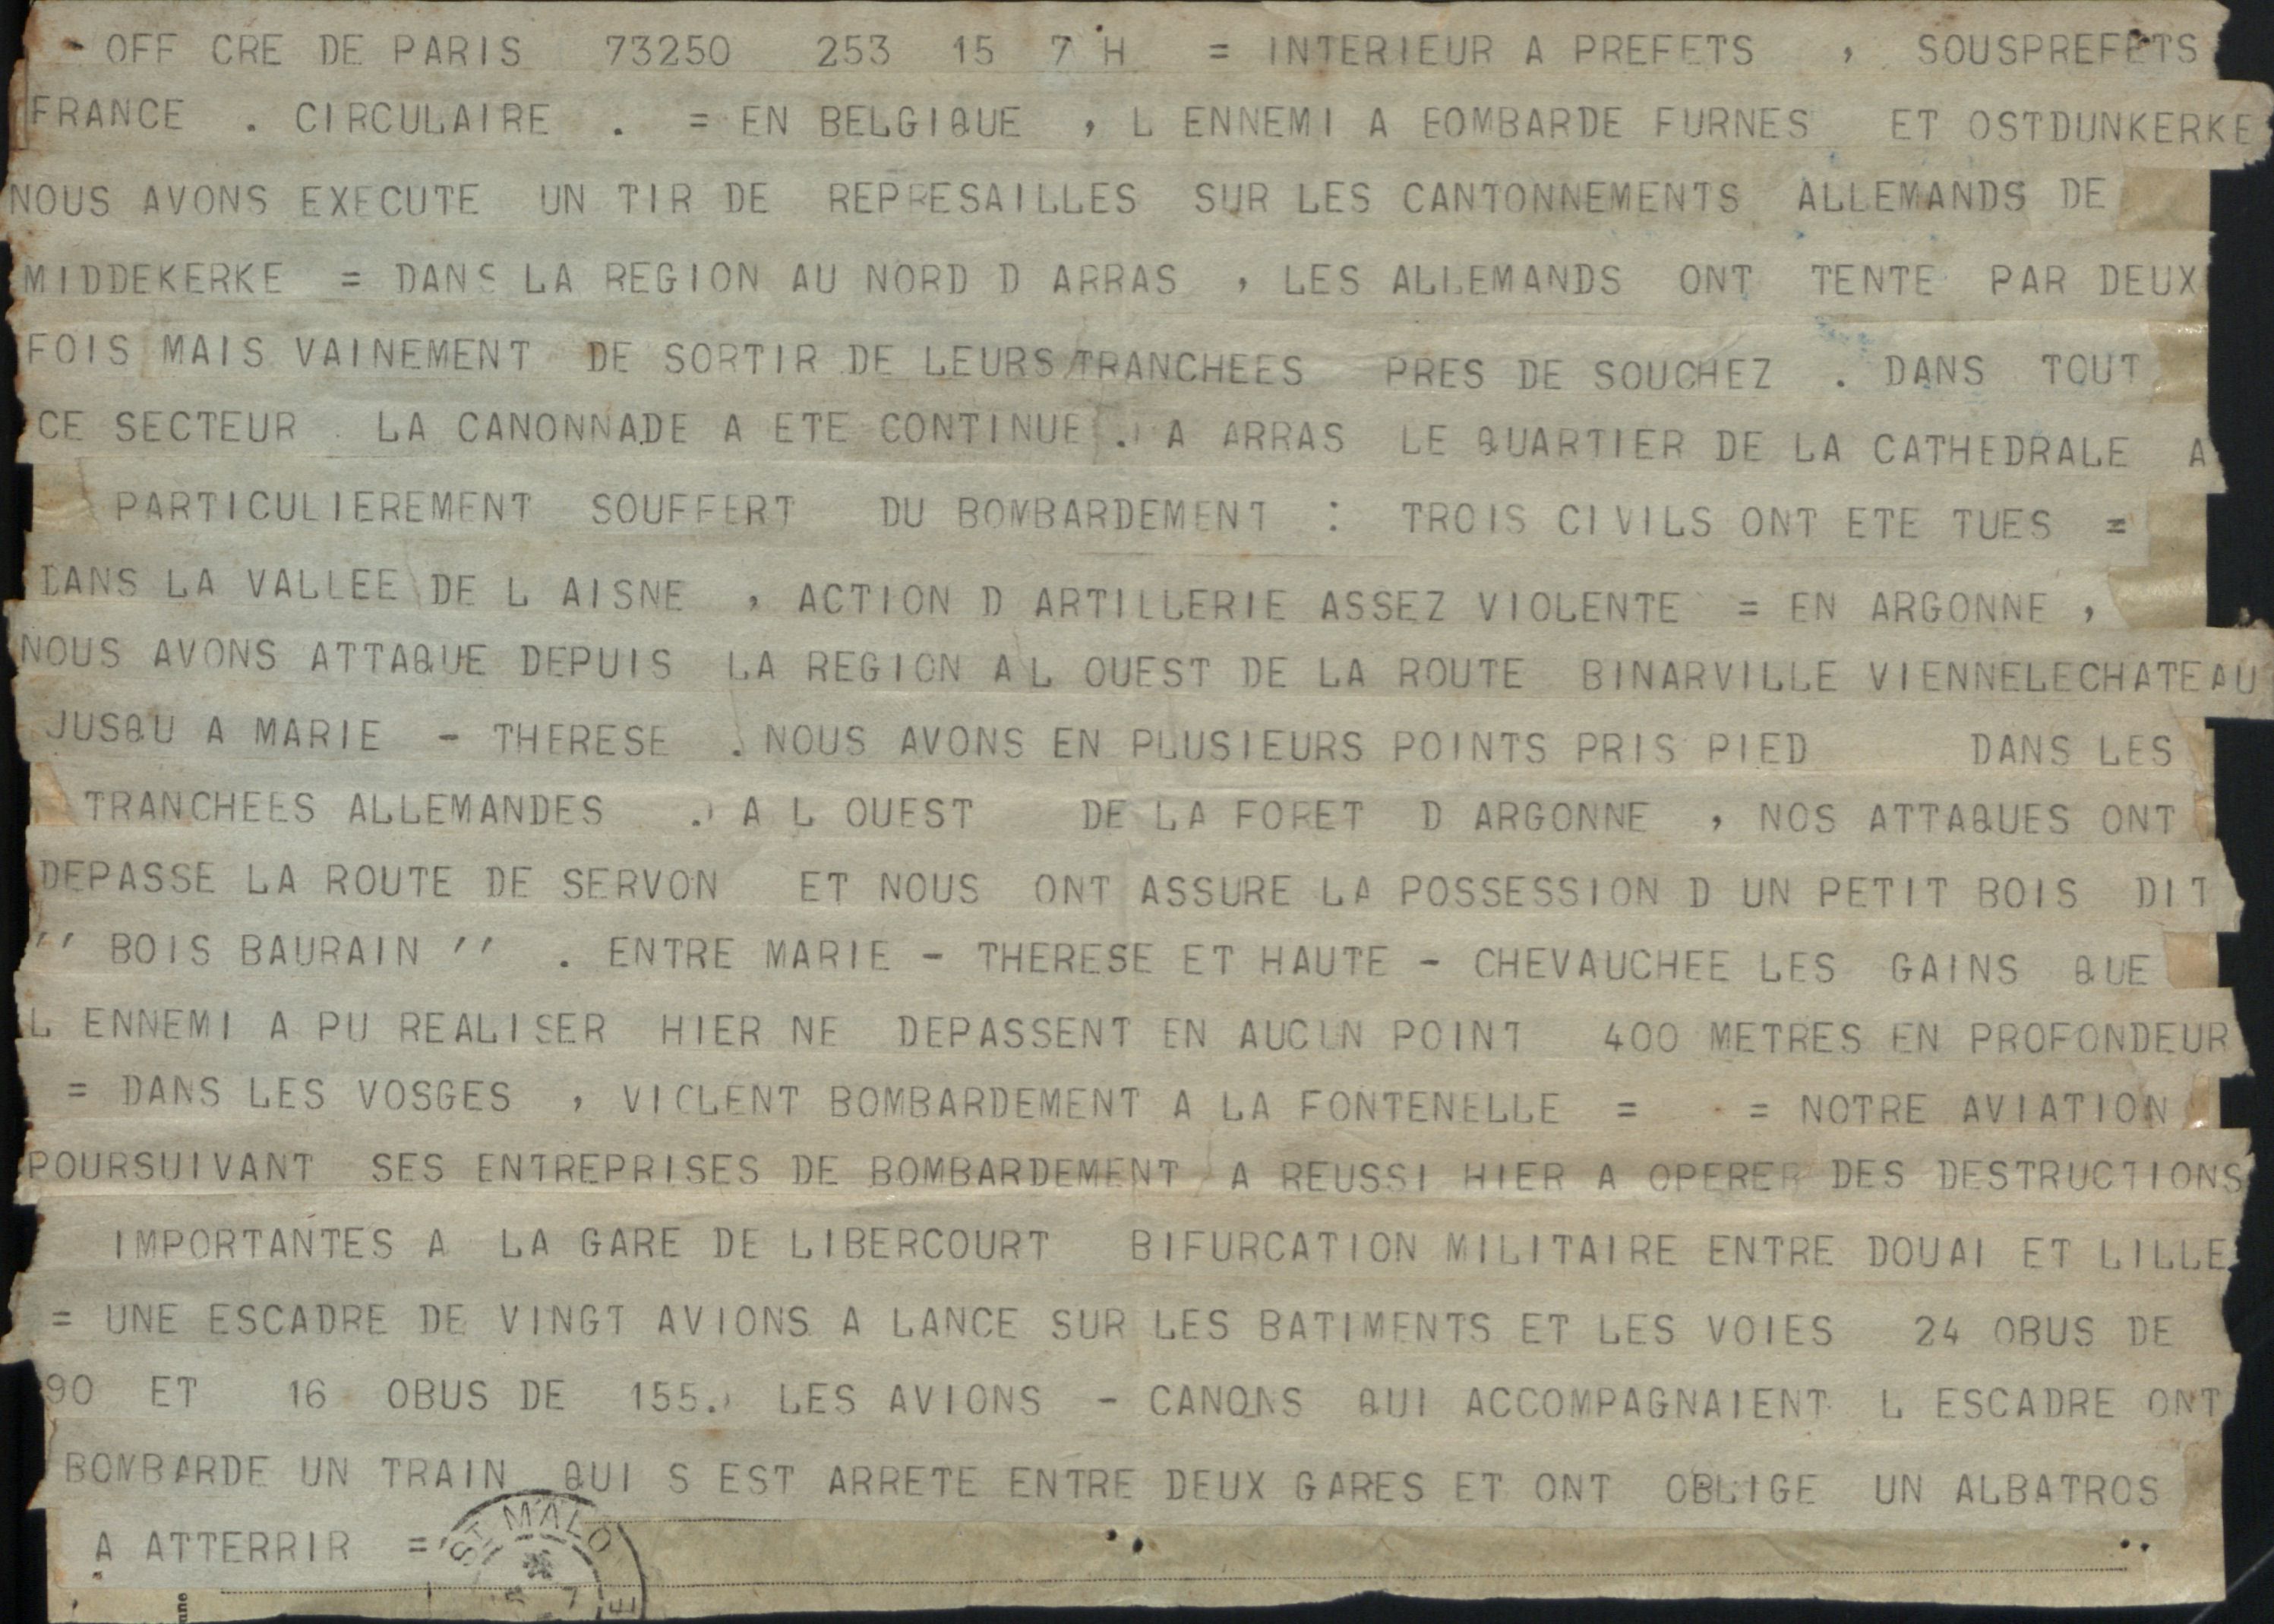 - OFF CRE DE PARIS 73250 253 15 7 H = INTERIEUR A PREFETS , SOUSPREFETS
FRANCE . CIRCULAIRE . = EN BELGIQUE , L ENNEMI A EOMBARDE FURNES ET OSTDUNKERKE
NOUS AVONS EXECUTE UN TIR DE REPRESAILLES SUR LES CANTONNEMENTS ALLEMANDS DE
MIDDEKERKE = DANS LA REGION AU NORD D ARRAS , LES ALLEMANDS ONT TENTE PAR DEUX
FOIS MAIS VAINEMENT DE SORTIR DE LEURS TRANCHEES PRES DE SOUCHEZ . DANS TOUT
CE SECTEUR . LA CANONNADE A ETE CONTINUE . A ARRAS LE QUARTIER DE LA CATHEDRALE A
PARTICULIEREMENT SOUFFERT DU BOMBARDEMENT : TROIS CIVILS ONT ETE TUES =
DANS LA VALLEE DE L AISNE , ACTION D ARTILLERIE ASSEZ VIOLENTE = EN ARGONNE ,
NOUS AVONS ATTAQUE DEPUIS LA REGION A L OUEST DE LA ROUTE BINARVILLE VIENNELECHATEAU
JUSQU A MARIE - THERESE . NOUS AVONS EN PLUSIEURS POINTS PRIS PIED DANS LES
TRANCHEES ALLEMANDES . A L OUEST DE LA FORET D ARGONNE , NOS ATTAQUES ONT
DEPASSE LA ROUTE DE SERVON ET NOUS ONT ASSURE LA POSSESSION D UN PETIT BOIS DIT
'' BOIS BAURAIN '' . ENTRE MARIE - THERESE ET HAUTE - CHEVAUCHEE LES GAINS QUE
L ENNEMI A PU REALISER HIER NE DEPASSENT EN AUCUN POINT 400 METRES EN PROFONDEUR
= DANS LES VOSGES , VIOLENT BOMBARDEMENT A LA FONTENELLE = = NOTRE AVIATION
POURSUIVANT SES ENTREPRISES DE BOMBARDEMENT A REUSSI HIER A OPERER DES DESTRUCTIONS
IMPORTANTES A LA GARE DE LIBERCOURT BIFURCATION MILITAIRE ENTRE DOUAI ET LILLE
= UNE ESCADRE DE VINGT AVIONS A LANCE SUR LES BATIMENTS ET LES VOIES 24 OBUS DE
90 ET 16 OBUS DE 155. LES AVIONS - CANONS QUI ACCOMPAGNAIENT L ESCADRE ONT
BOMBARDE UN TRAIN QUI S EST ARRETE ENTRE DEUX GARES ET ONT OBLIGE UN ALBATROS
A ATTERRIR =
ST MALO